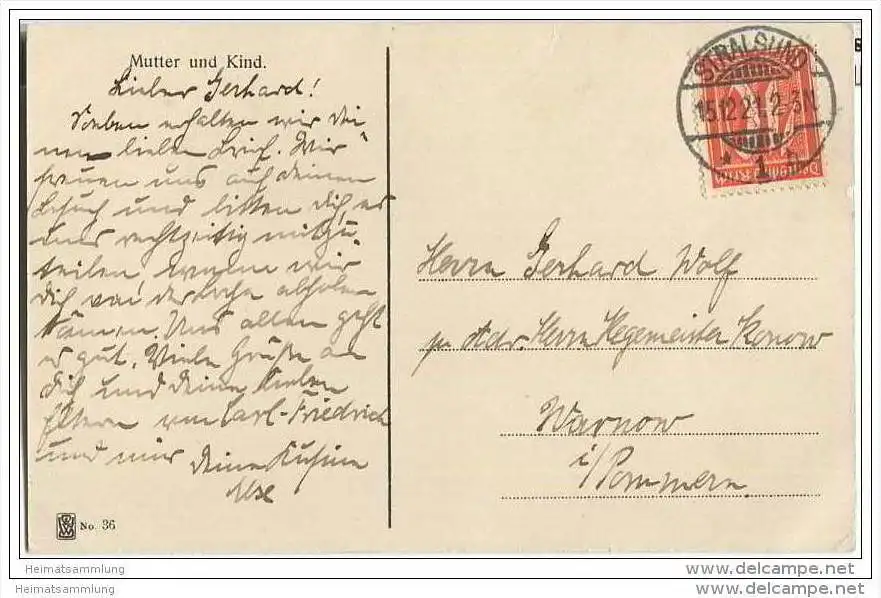 Mutter und Kind.
Lieber Gerhard!
Soeben erhalten wir dei
nen lieben Brief. Wir
freuen uns auf deinen
Besuch und bitten dich, es
uns rechtzeitig mitzu
teilen wann wir
dich von der Bahn abholen
können. Uns allen geht
es gut. Viele Grüße an
dich und deine lieben
Eltern von Carl-Friedrich
und mir deine Kusine
Ilse
No. 36
STRALSUND
15.12.21.2-3N
* 1
Deutsches Reich
Herrn Gerhard Wolf
p. Adr. Herrn Hegemeister Konow
Warnow
i/Pommern
Heimatsammlung
Heimatsammlung
www.delcampe.net
www.delcampe.net